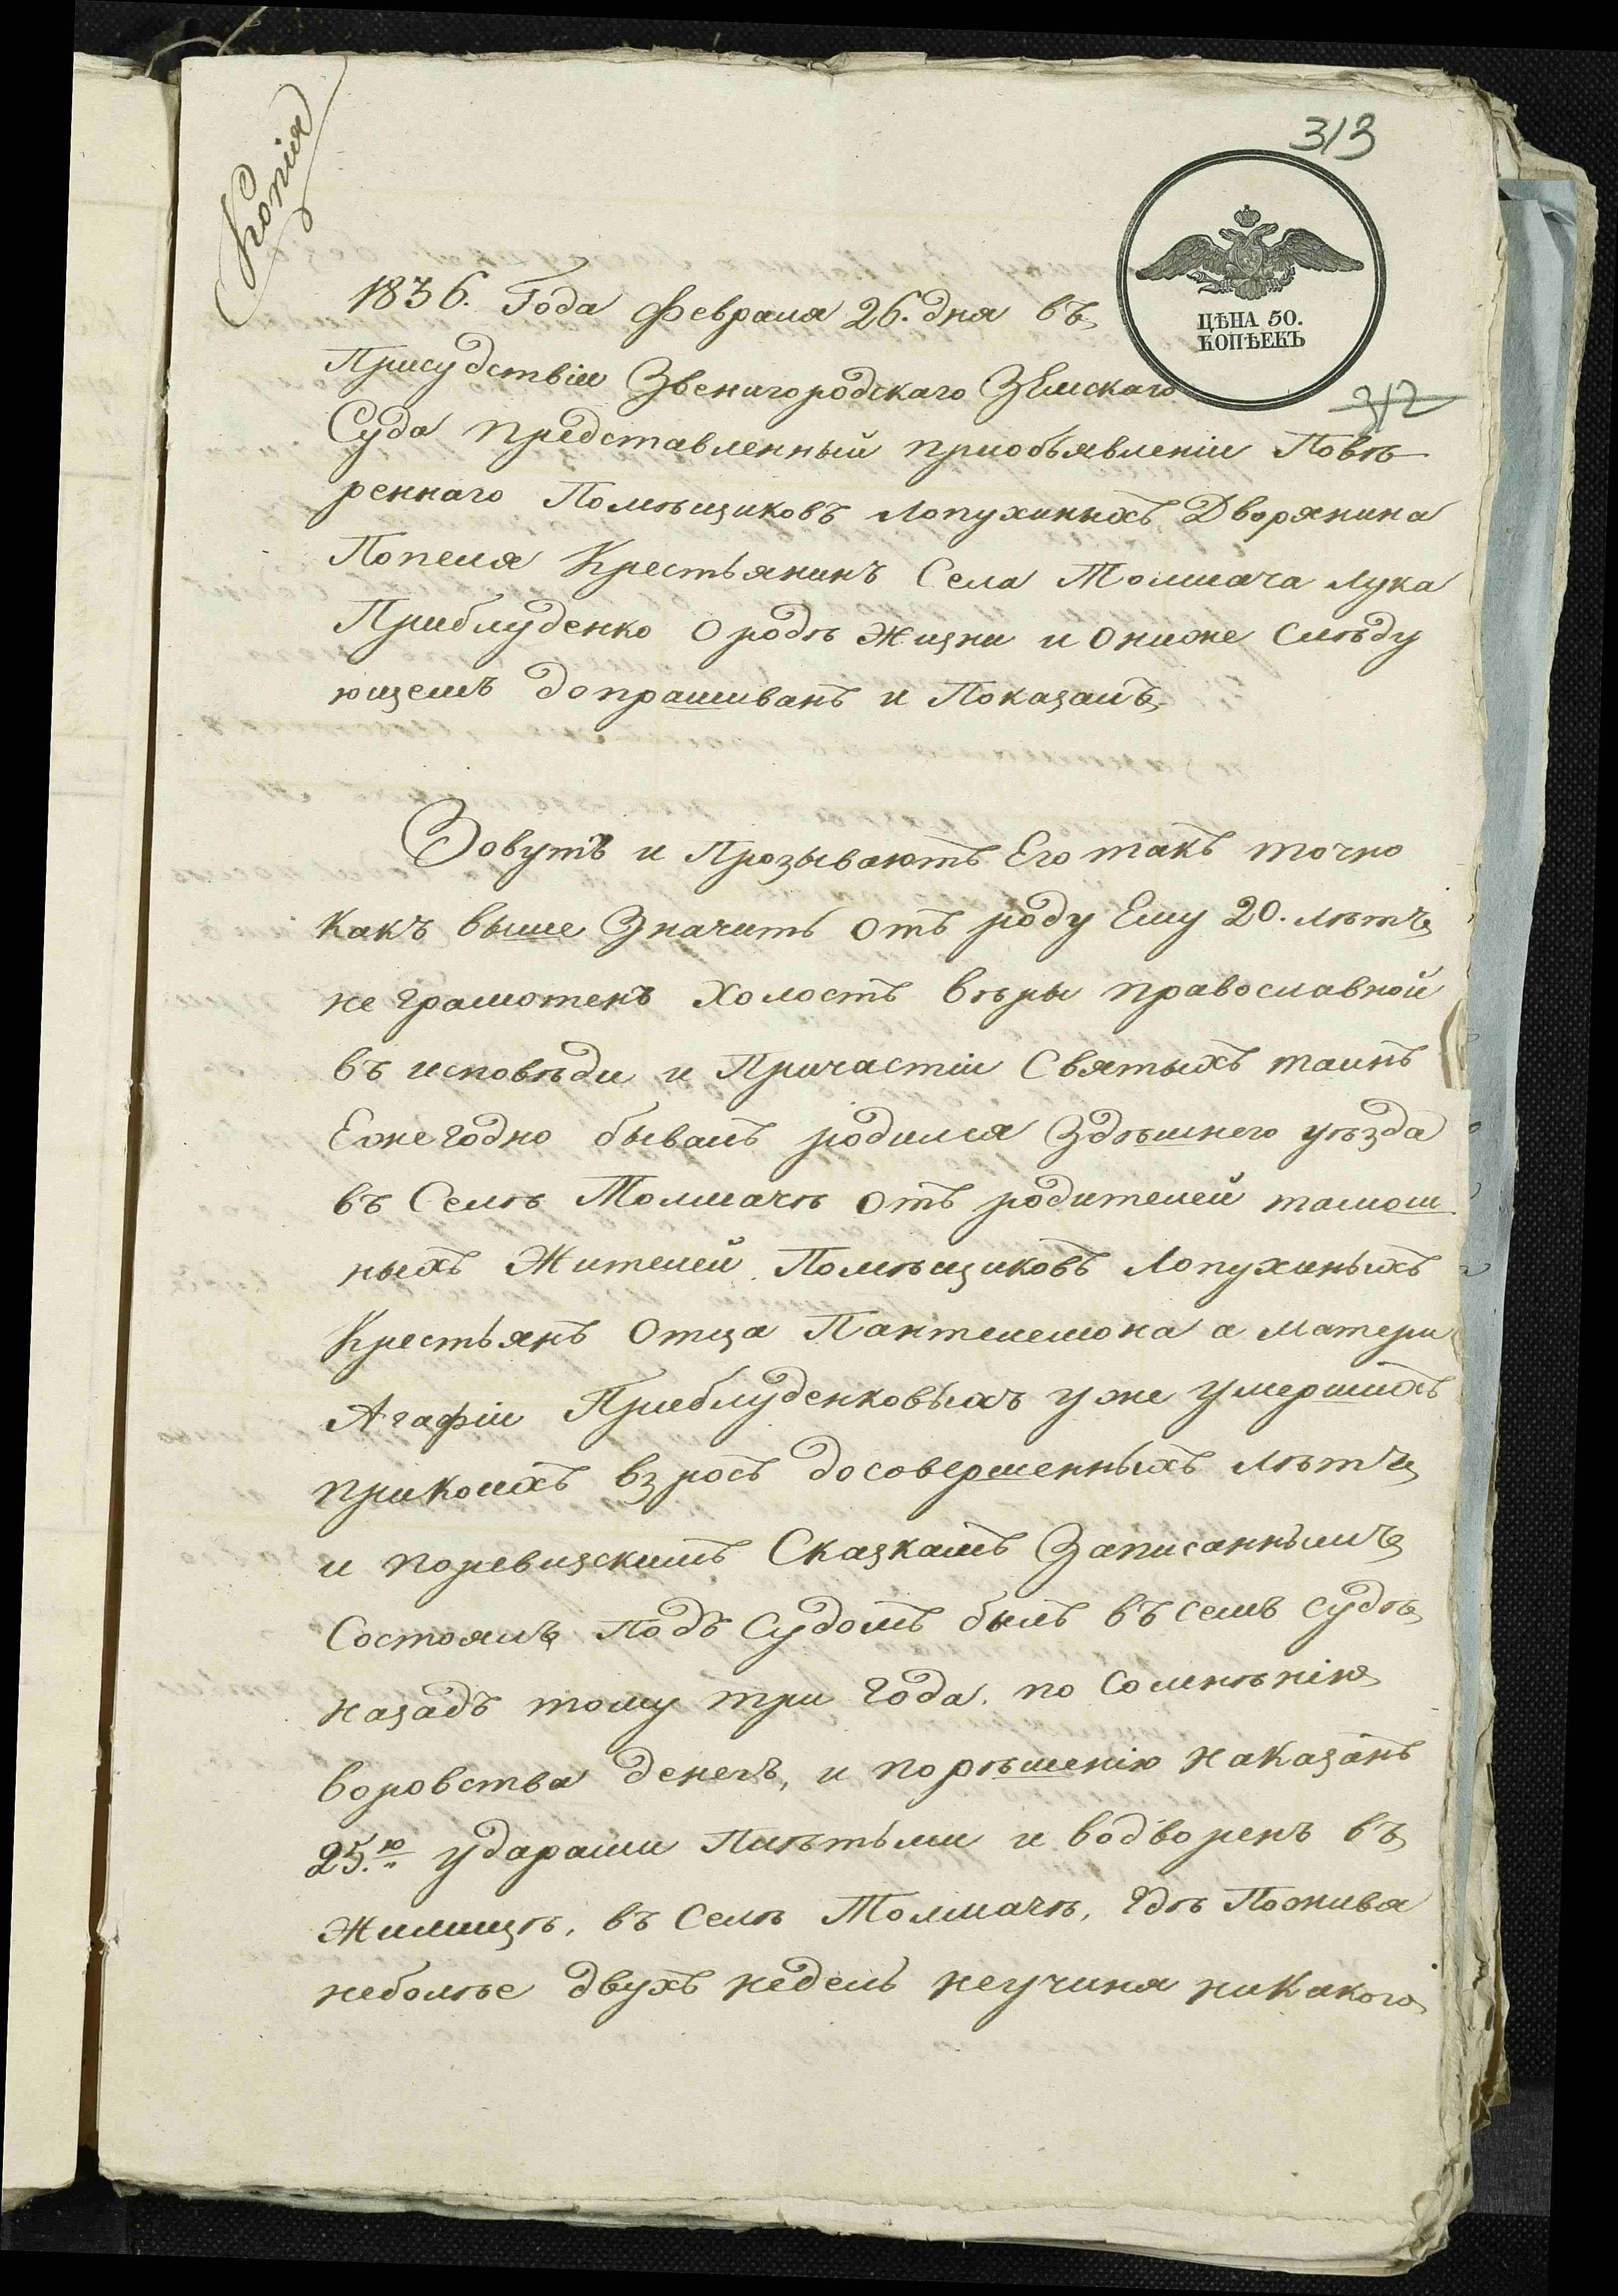 Копія
313
ЦѢНА 50.
КОПѢЕКЪ
312
1836. Года Февраля 26. дня въ
Присудствіи Звенигородскаго Земскаго
Суда представленный приобъявленіи Повѣ
реннаго Помѣщиковъ Лопухиныхъ Дворянина
Попеля Крестьянинъ Села Толмача Лука
Приблуденко О родѣ жизни и Ониже Слѣду
ющемъ допрашиванъ и Показалъ
Зовутъ и Прозываютъ Его такъ точно
какъ выше Значитъ Отъ роду Ему 20. лѣтъ
не грамотенъ Холостъ вѣры православной
въ исповѣди и Причастіи Святыхъ таинъ
Ежегодно бывалъ родился Здѣшнего уѣзда
въ Селѣ Толмачѣ Отъ родителей тамош
ныхъ Жителей Помѣщиковъ Лопухиныхъ
Крестьянъ Отца Пантелемона а матери
Агафіи Приблуденковыхъ уже умершихъ
прикоихъ взросъ досовершенныхъ лѣтъ
и поревизскимъ Сказкамъ Записаннымъ
Состоялъ Подъ Судомъ былъ въ семъ судѣ
назадъ тому три года по Сомнѣнію
воровства денегъ, и порѣшенію наказанъ
25.ю ударами Плѣтьми и водворенъ въ
Жилищѣ, въ Селѣ Толмачѣ, гдѣ Пожива
неболѣе двухъ недель неучиня никакого